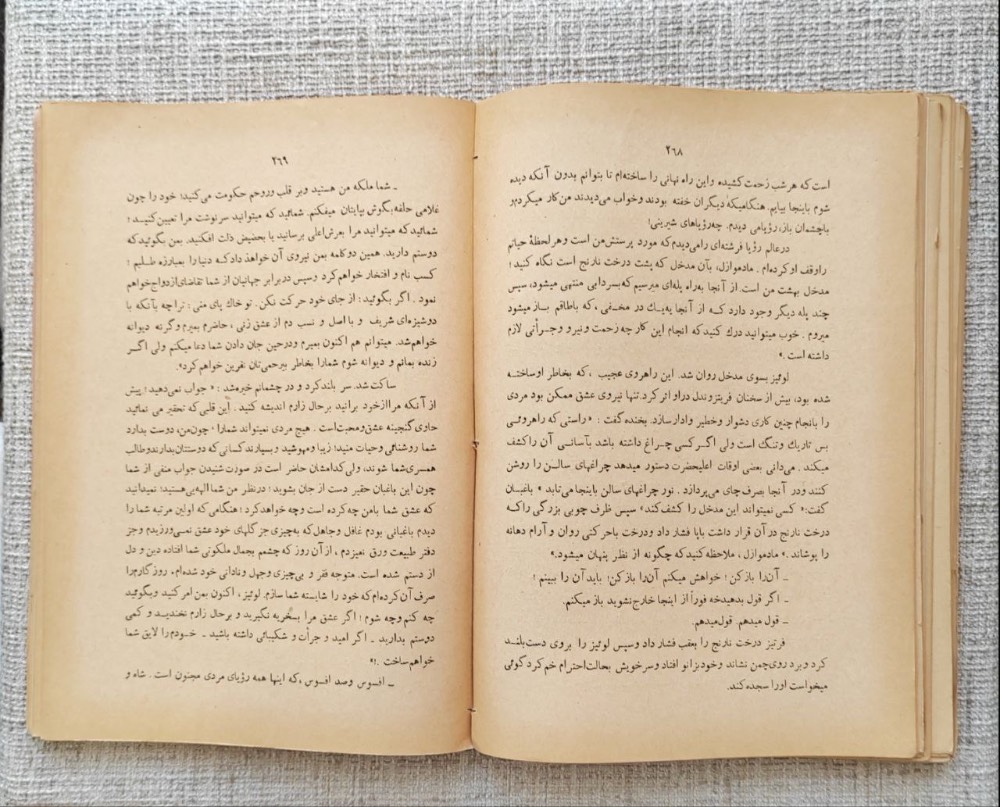 ۲۶۸
است که هر شب زحمت کشیده و این راه نهانی را ساخته‌ام تا بتوانم بدون آنکه دیده
شوم باینجا بیایم. هنگامیکه دیگران خفته بودند وخواب می‌دیدند من کار میکردم و
باچشمان باز، رؤیا می دیدم. چه رؤیاهای شیرینی!
در عالم رؤیا فرشته‌ای رامی‌دیدم که مورد پرستش من است وهر لحظهٔ حیاتم
راوقف اوکرده‌ام. مادموازل، بآن مدخل که پشت درخت نارنج است نگاه کنید؛
مدخل بهشت من است. از آنجا به‌راه پله‌ای میرسیم که بسردابی منتهی میشود، سپس
چند پله دیگر وجود دارد کـه از آنجا به‌یك در مخـفی، که باطاقم بـاز میشود
میروم. خوب میتوانید درك کنید که انجام این کار چه زحمت ونیرو وجـرأتی لازم
داشته است.»
لوئیز بسوی مدخل روان شد. این راهروی عجیب، که بخاطر او ساختـه
شده بود، بیش از سخنان فریتز وندل دراو اثر کرد. تنها نیروی عشق ممکن بود مردی
را بانجام چنین کاری دشوار وخطیر وادار سازد. بخنده گفت: «راستی که راهروئی
بس تاریك وتنگ است ولی اگر کسی چراغ داشته باشد بآسانـی آن را کشف
میکند. می‌دانی بعضی اوقات اعلیحضرت دستور میدهد چراغهای سالـن را روشن
کنند ودر آنجا بصرف چای می‌پردازد. نور چراغهای سالن باینجا می‌تابد» باغبـان
گفت: «کسی نمیتواند این مدخل را کشف کند» سپس ظرف چوبی بزرگی را که
درخت نارنج در آن قرار داشت باپا فشار داد ودرخت باحرکتی روان و آرام دهانه
را پوشاند. «مادموازل، ملاحظه کنید که چگونه از نظر پنهان میشود.»
ـ آن‌را باز کن! خواهش میکنم آن‌را باز کن! باید آن را ببینم!
ـ اگر قول بدهید که فوراً از اینجا خارج نشوید باز میکنم.
ـ قول میدهم. قول میدهم.
فریتز درخت نارنج را بعقب فشار داد وسپس لوئیز را بروی دست بلنـد
کرد و برد روی چمن نشاند وخود بزانو افتاد وسر خویش بحالت احترام خم کرد گوئی
میخواست او را سجده کند.
۲۶۹
ـ شما ملکه من هستید و بر قلب وروحم حکومت می‌کنید؛ خود را چون
غلامی حلقه بگوش بپایتان میفکنم. شمائید که میتوانید سرنوشت مرا تعیین کنیـد؛
شمائید که میتوانید مرا بعرش اعلی برسانید یا بحضیض ذلت افکنید. بمن بگوئید که
دوستم دارید. همین دو کلمه بمن نیروی آن خواهد داد کـه دنیا را بمبارزه طلبـم؛
کسب نام و افتخار خواهم کرد وسپس در برابر جهانیان از شما تقاضای ازدواج خواهم
نمود. اگر بگوئید: از جای خود حرکت نکن. تو خاك پای منی؛ ترا چه بآنکه با
دوشیزه‌ای شریف و با اصل و نسب دم از عشق زنی، حاضرم بمیرم وگر نه دیوانه
خواهم شد. میتوانم هم اکنون بمیرم ودرحین جان دادن شما دعا میکنم ولی اگـر
زنده بمانم و دیوانه شوم شمارا بخاطر بیرحمی‌تان نفرین خواهم کرد».
ساکت شد. سر بلند کرد و در چشمانم خیره شد: «جواب نمی‌دهید؛ پیش
از آنکه مرا از خود برانید بر حال زارم اندیشه کنید. این قلبی که تحقیر می نمائید
حاوی گنجینه عشق و محبت است. هیچ مردی نمیتواند شما را، چون من، دوست بدارد
شما روشنائی وحیات منید؛ زیبا ومهوشید و بسیارند کسانی که دوستتان بدارند وطالب
همسری شما شوند، ولی کدامشان حاضر است در صورت شنیدن جواب منفی از شما
چون این باغبان حقیر دست از جان بشوید؛ در نظر من شما الهه‌یی هستید؛ نمیدانید
که عشق شما بامن چه کرده است وچه خواهد کرد؛ هنگامی که اولین مرتبه شما را
دیدم باغبانی بودم غافل وجاهل که به‌چیزی جز گلهای خود عشق نمی‌ورزیدم وجز
دفتر طبیعت ورق نمیزدم، از آن روز که چشمم بجمال ملکوتی شما افتاده دین و دل
از دستم شده است. متوجه فقر و بی‌چیزی وجهل ونادانی خود شده‌ام، روزگارم را
صرف آن کرده‌ام که خود را شایسته شما سازم. لوئیز، اکنون بمن امر کنید وبگوئید
چه کنم وچه شوم؛ اگر عشق مرا بسخریه نگیرید و بر حال زارم نخندیـد و کمی
دوستم بدارید ـ اگر امید و جرأت و شکیبائی داشته باشید ـ خـودم را لایق شما
خواهم ساخت.!»
ـ افسوس وصد افسوس، که اینها همه رؤیای مردی مجنون است. شاه و